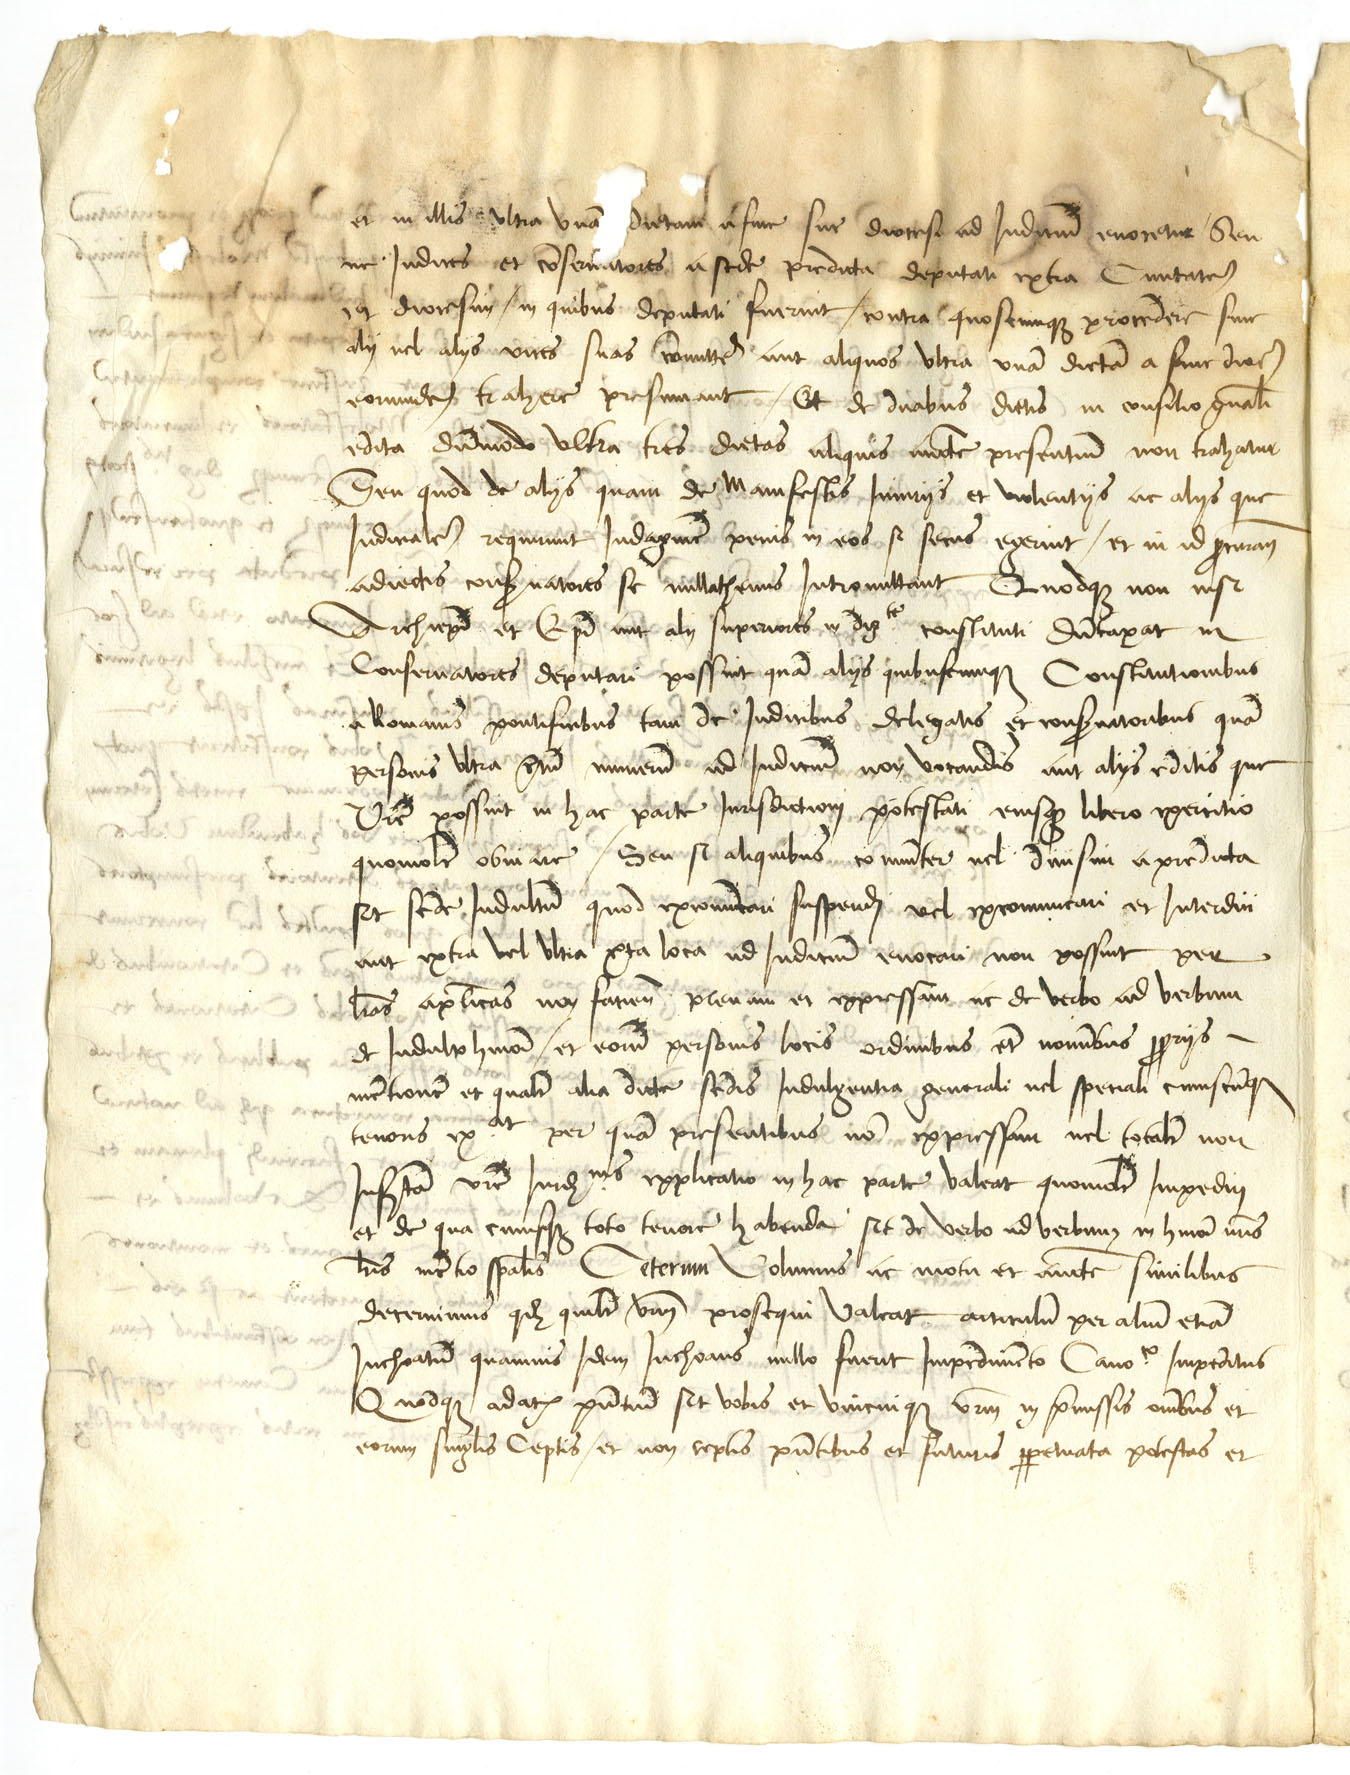 et in illis ultra unã dietam a fine sue diocesis ad Iudiciũ evocetur / Seu
ne Iudices et cõservatores a sede predicta deputati extra Civitatẽ
et diocesim / in quibus deputati fuerint / contra quoscunq3 procedere sive
alij vel alijs vices suas cõmitte͂ aut aliquos ultra unã dietã a fine dioc͂
eorundẽ trahere presumant / Et de duabus dietis in consilio gnãli
edita dũmodo ultra tres dietas aliquis aucte presentiũ non trahatur
Seu quod de alijs quam de manifestis Iniurijs et violentijs ac alijs que
Iudicialẽ requirunt Indaginẽ penis in eos si secus egerint / et in id procuran͂
adiectis conservatores se nullathenus Intromittant Quodq3 non nisi
Archiepĩ et Epĩ aut alij superiores in dig.te constituti dũtaxat in
Conservatores deputari possint quã alijs quibuscunq3 Constitutionibus
a Romanis pontificibus tam de Iudicibus delegatis et conservatoribus quã
personis ultra cer̃tũ numerũ ad Iudiciũ non vocandis aut alijs editis que
Vr̃e possint in hac parte Iurisdictioni potestati eiusq3 libero exercitio
quomolt̃ obviare / Seu si aliquibus cõmuniter vel divisim a predicta
sit sede Indultũ quod excomunicari suspendi vel excomunicari et Interdici
aut extra vel ultra certa loca ad Iudiciũ evocari non possint per
lr̃as aplicas non facien͂ plenam et expressam ac de verbo ad verbum
de Indulto hmõi / et eorũ personis locis ordinibus et nominibus proprijs
mẽtionẽ et qualt̃ alia dicte sedis Indulgentia generali vel speciali cuiuscũq3
tenoris existat per quã presentibus nõ expressam vel totalt̃ non
Insertã vr̃e Iurd.nis explicatio in hac parte valeat quomolt̃ Impediri
et de qua cuiusq3 toto tenore habenda sit de verbo ad verbum in hmõi nris
lr̃is mẽtio spãlis Ceterum Volumus ac motu et aucte similibus
decernimus qd quilt̃ vrm prosequi Valeat articulũ per aliũ etiã
Inchoatũ quamvis Idem Inchoans nullo fuerit Impedimẽto Cano.co Impeditus
Quodq3 a dat͂ pñtiũ sit vobis et unicuiq3 vrm in premissis omĩbus et
eorum singlis Ceptis / et non ceptis pñtibus et futuris perpetuata potestas et